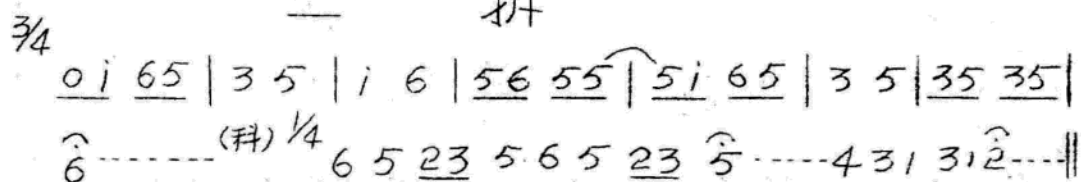 一 折
3/4
0i 65 | 3 5 | i 6 | 56 55 | 5i 65 | 3 5 | 35 35 |
6 -------- (科) 1/4 6 5 23 5 6 5 23 5 ----- 4 3 1 3 1 2 ---- ‖